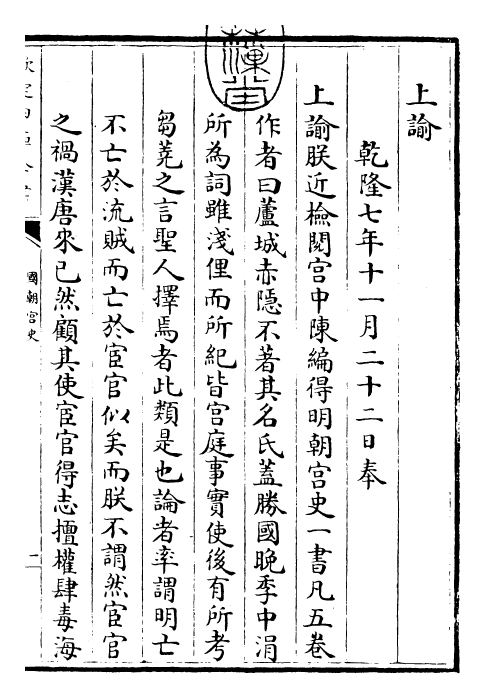 上諭
乾隆七年十一月二十二日奉
上諭朕近檢閱宫中陳編得明朝宫史一書凡五卷
作者曰蘆城赤隱不著其名氏蓋勝國晚季中涓
所為詞雖淺俚而所紀皆宫庭事實使後有所考
芻蕘之言聖人擇焉者此類是也論者率謂明亡
不亡於流賊而亡於宦官似矣而朕不謂然宦官
之禍漢唐來已然顧其使宦官得志擅權肆毒海
國朝宫史
二